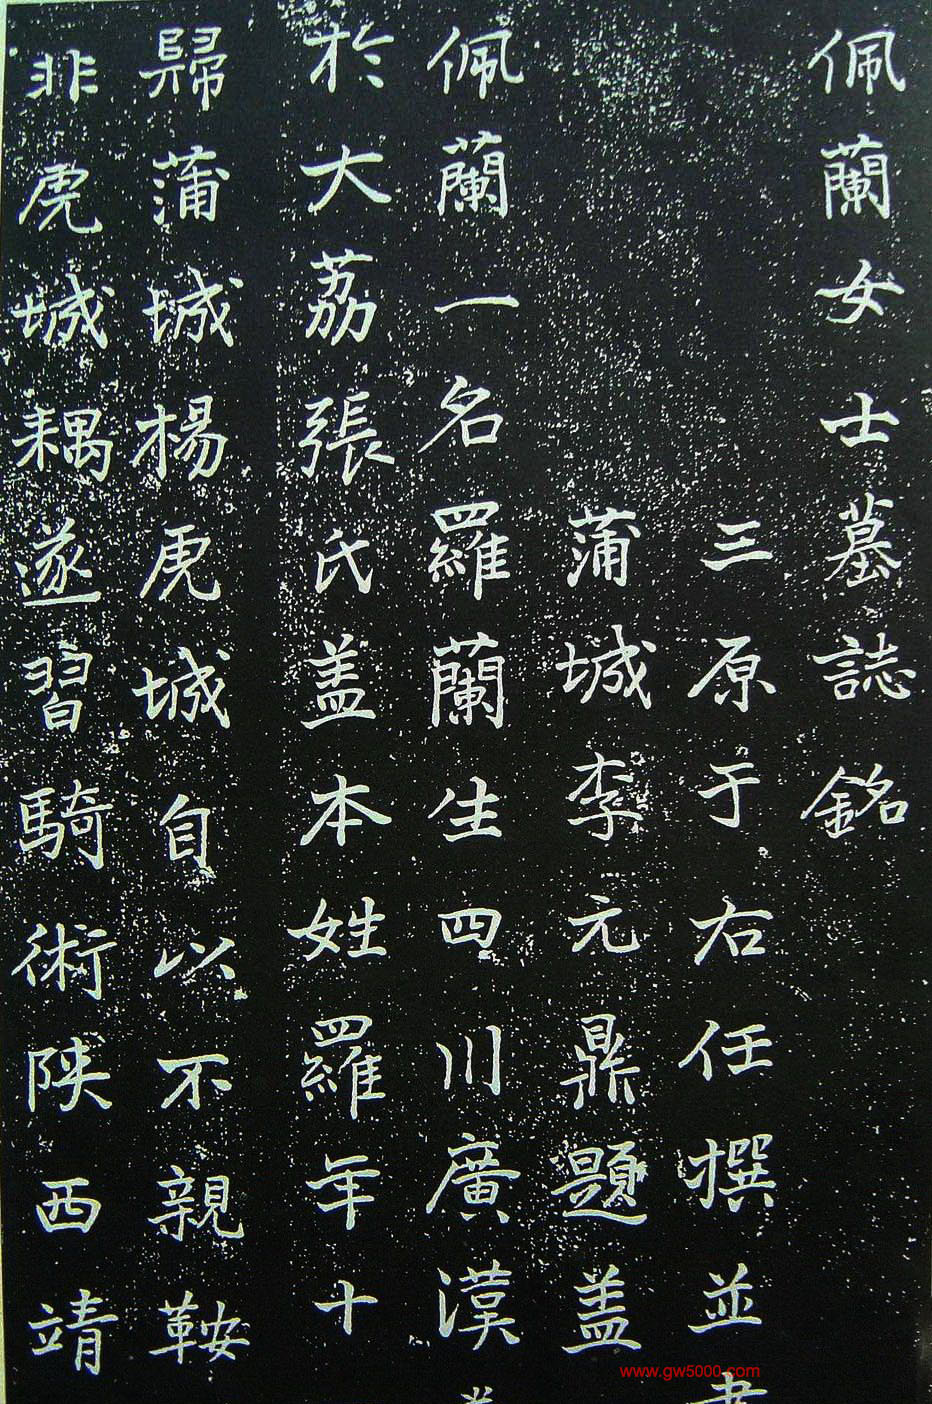 佩蘭女士墓誌銘
三原于右任撰並書
蒲城李元鼎題盖
佩蘭一名羅蘭生四川廣漢
於大荔張氏盖本姓羅年十
歸蒲城楊虎城自以不親鞍
非虎城耦遂習騎術陝西靖
www.gw5000.com